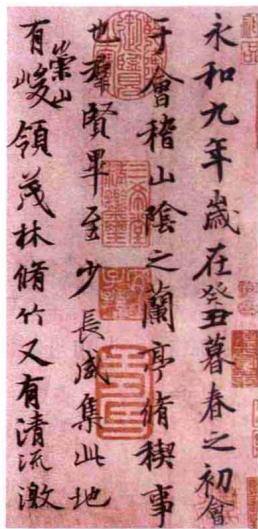 永和九年歲在癸丑暮春之初會
于會稽山陰之蘭亭脩禊事
也羣賢畢至少長咸集此地
有崇山峻領茂林脩竹又有清流激